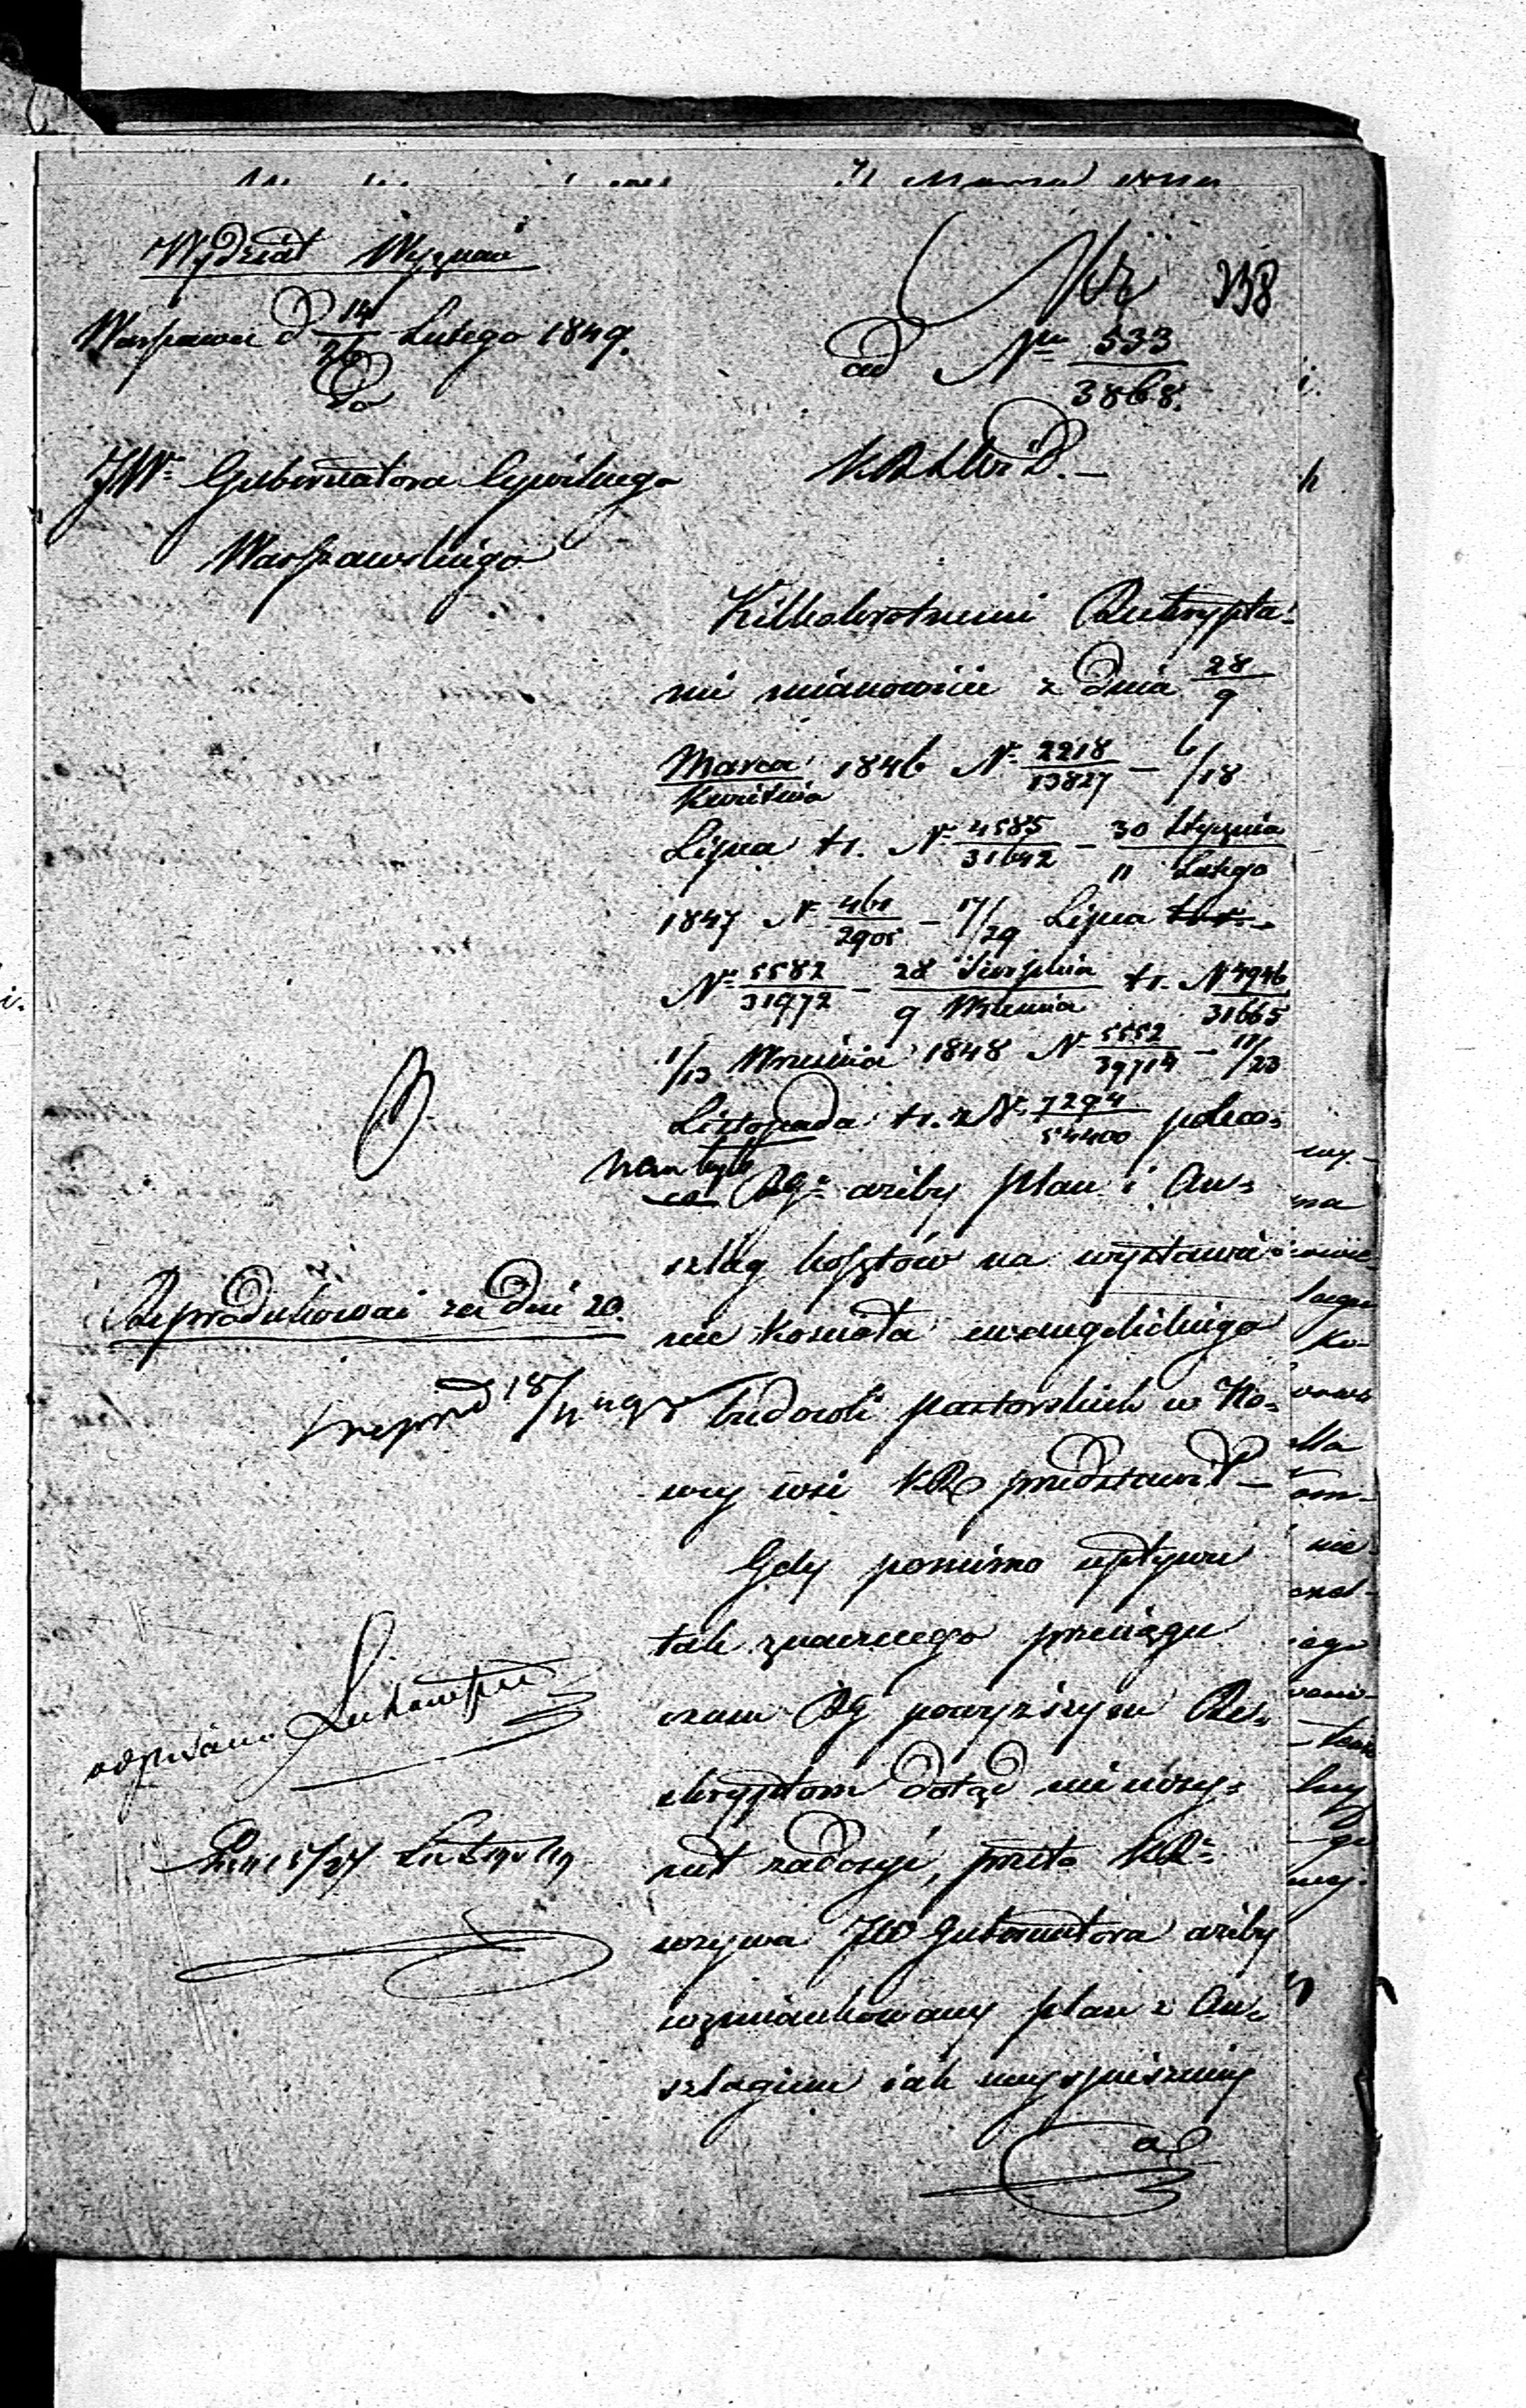 Wydział Wyznań
Warszawa d 14/26 Lutego 1849.
Do
JW. Gubernatora Cywilnego
Warszawskiego
238
ad Nru 533/3868.
Kilkakrotnemi Reskrypta-
mi mianowicie z dnia 28/9
Marca/Kwietnia 1846 N. 2218/13827 – 6/18
Lipca t.r. N. 4585/31642 – 30 Stycznia/11 Lutego
1847 N. 461/2905 – 17/29 Lipca t.r. –
N. 5582/31972 – 28 Sierpnia/9 Września t.r. N. 4946/31665
1/13 Września 1848 N. 5552/39714 – 11/23
Listopada t.r. N. 7294/54400 poleco-
RG. ażeby plan i An-
szlag kosztów na wystawie-
nie kościoła ewangelickiego
budowli pastorskich w No-
wej wsi KR przedstawił –
Gdy pomimo upływu
tak znacznego przeciągu
czasu RG powyższym Re-
skryptom dotąd nie uczy-
nił zadosyć, przeto KR.
wzywa JW Gubernatora ażeby
wzmiankowany plan z An-
szlagiem jak najspieszniej
Reprodukować za dni 20.